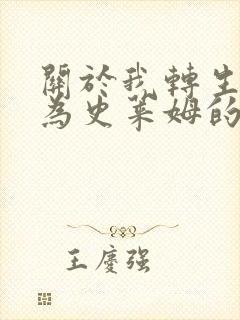 關於我轉生
為史萊姆的
王慶強